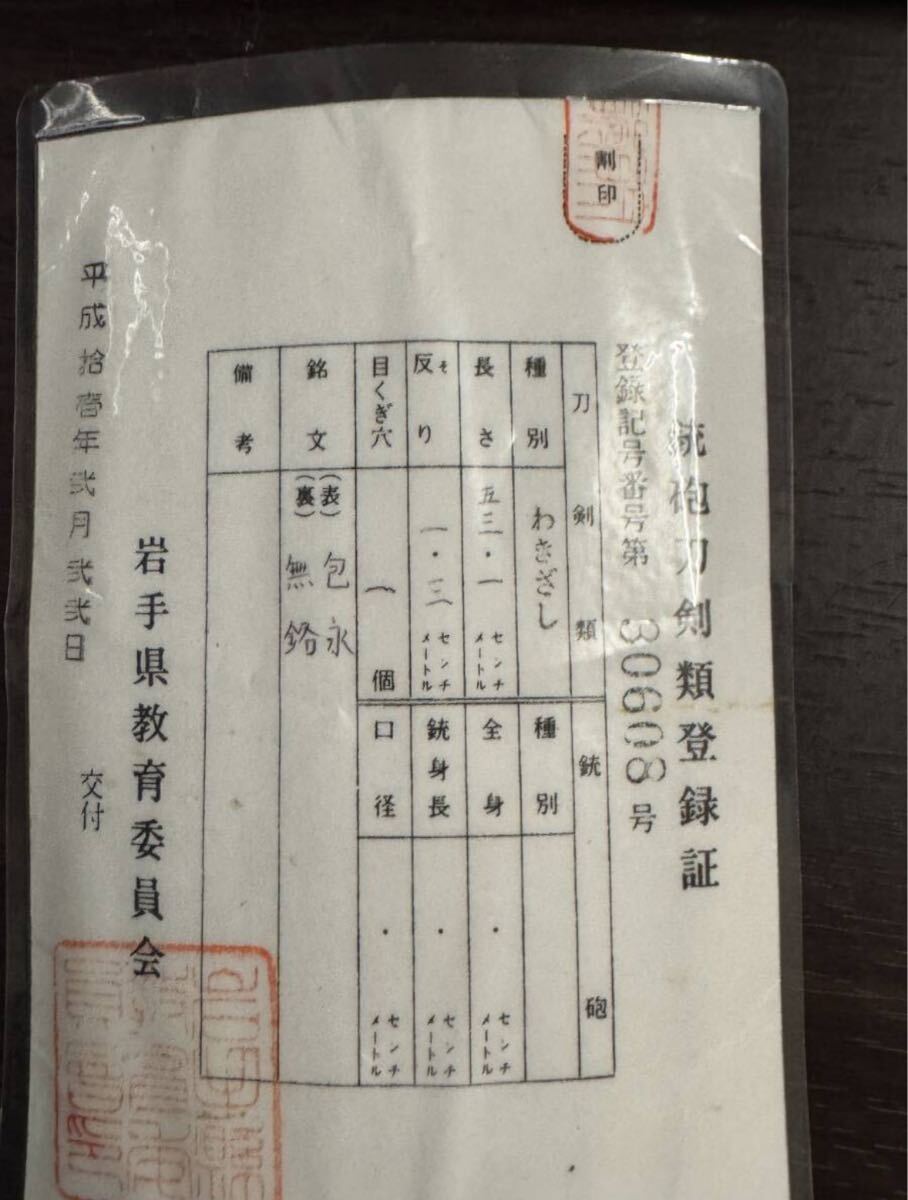 割印
銃砲刀剣類登録証
登録記号番号第 30608 号
刀剣類
種別 わきざし
長さ 五三・一 センチメートル
反り そ 一・三 センチメートル
目くぎ穴 一 個
銘文 (表) 包永
(裏) 無銘
備考
銃砲
種別
全身 ・ センチメートル
銃身長 ・ センチメートル
口径 ・ センチメートル
岩手県教育委員会
平成拾壱年弐月弐弐日 交付